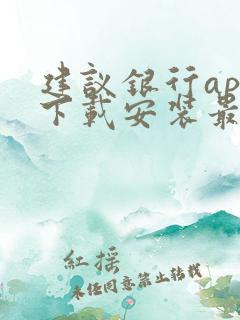 建議銀行ap
下載安裝最
紅摇
未经同意禁止转载